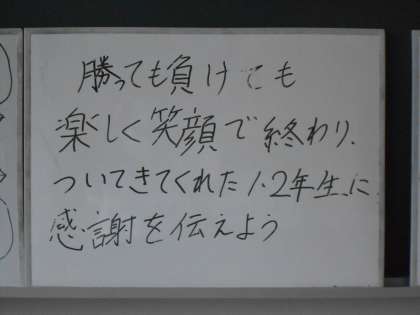 勝っても負けても
楽しく笑顔で終わり、
ついてきてくれた1.2年生に
感謝を伝えよう